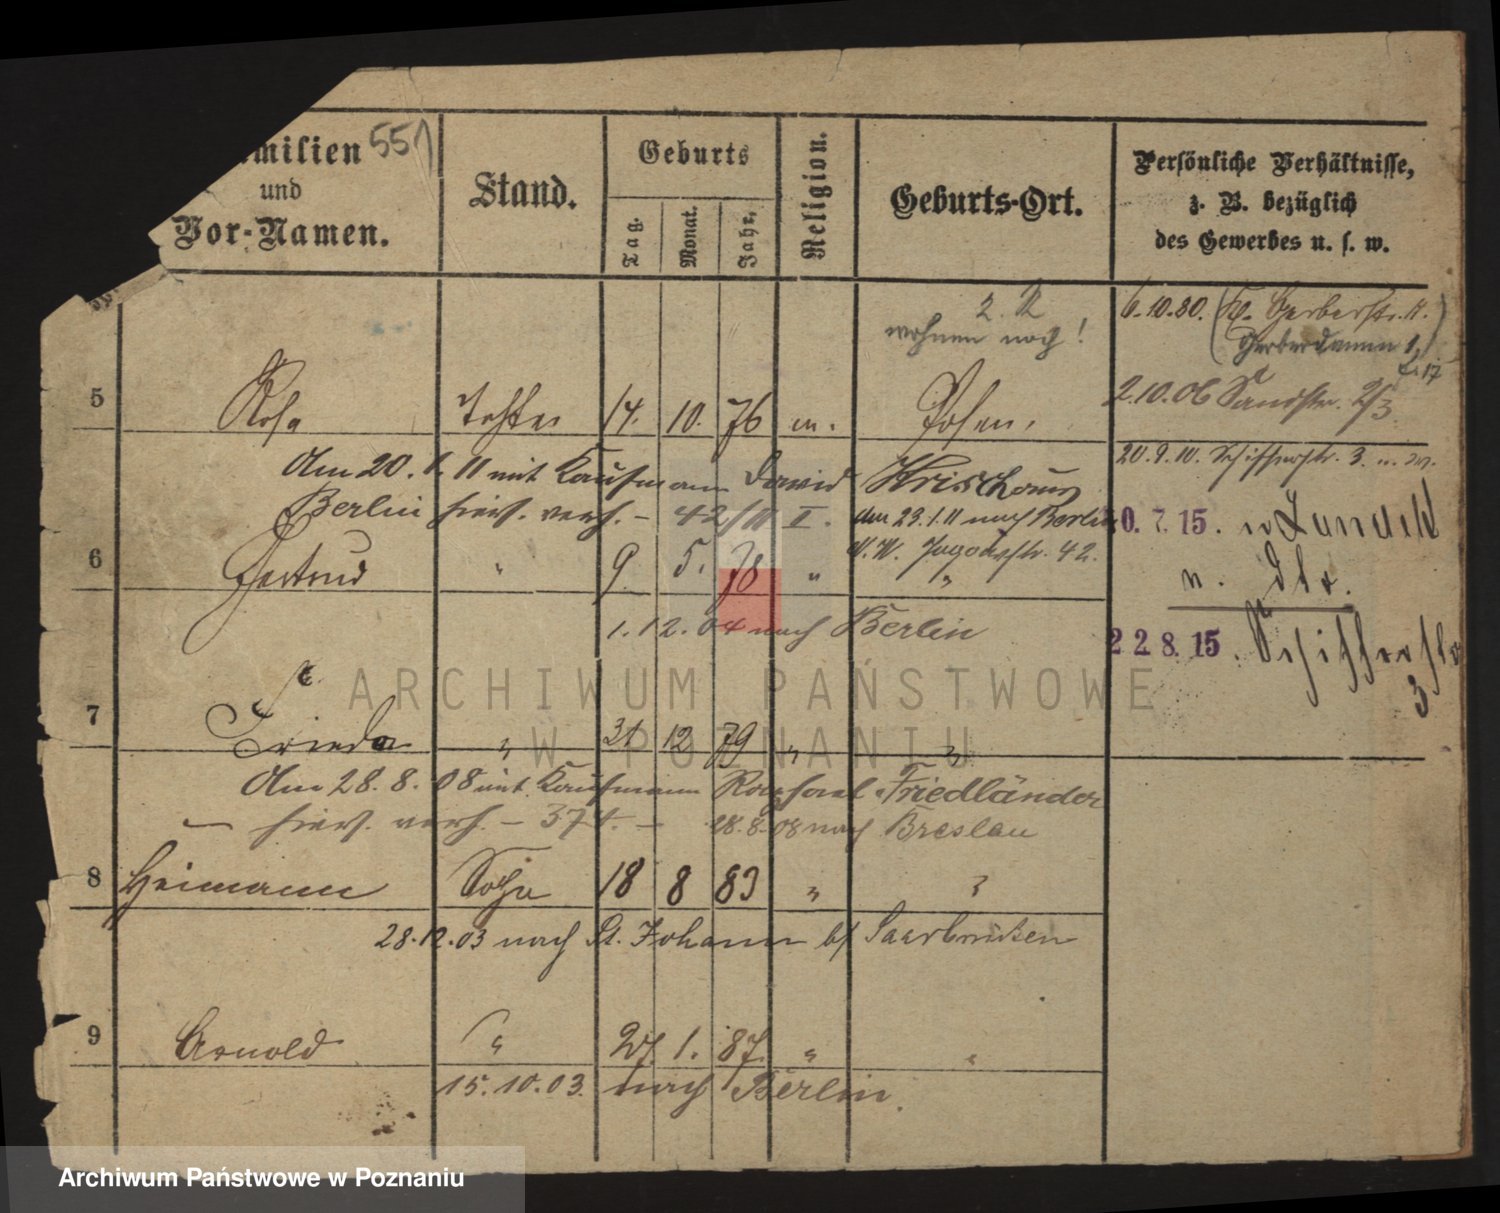 milien 551
und
Vor-Namen.
Stand.
Geburts
Tag.
Monat.
Jahr,
Religion.
Geburts-Ort.
Persönliche Verhältnisse,
z. B. bezüglich
des Gewerbes u. s. w.
wohnen noch!
6.10.80. Gerberstr. 11.
Gerberdamm 1,
5 Rosa Tochter 14. 10. 76 m. Posen.
2.10.06 Sandstr.
Am 20. 1. 11 mit Kaufmann David
20.9.10. Schifferstr. 3.
Berlin hiers. verh. – 42/11 II. am 23.1.11 nach Berlin
N.W. Jagowstr. 42.
0.7.15. n Landeck
6 Gertrud " 9. 5. 78 " "
n.
1.12.04 nach Berlin
22.8.15. Schifferstr.
3
7 Frieda " 31 12 79 " "
Am 28. 8. 08 mit Kaufmann Raphael Friedländer
– hiers. verh. – 374. – 28.8.08 nach Breslau
8 Heimann Sohn 18 8 83 " "
28.12.03 nach St. Johann b/ Saarbrücken
9 Arnold " 27. 1. 87. " "
15.10.03. nach Berlin.
ARCHIWUM PAŃSTWOWE
W POZNANIU
Archiwum Państwowe w Poznaniu